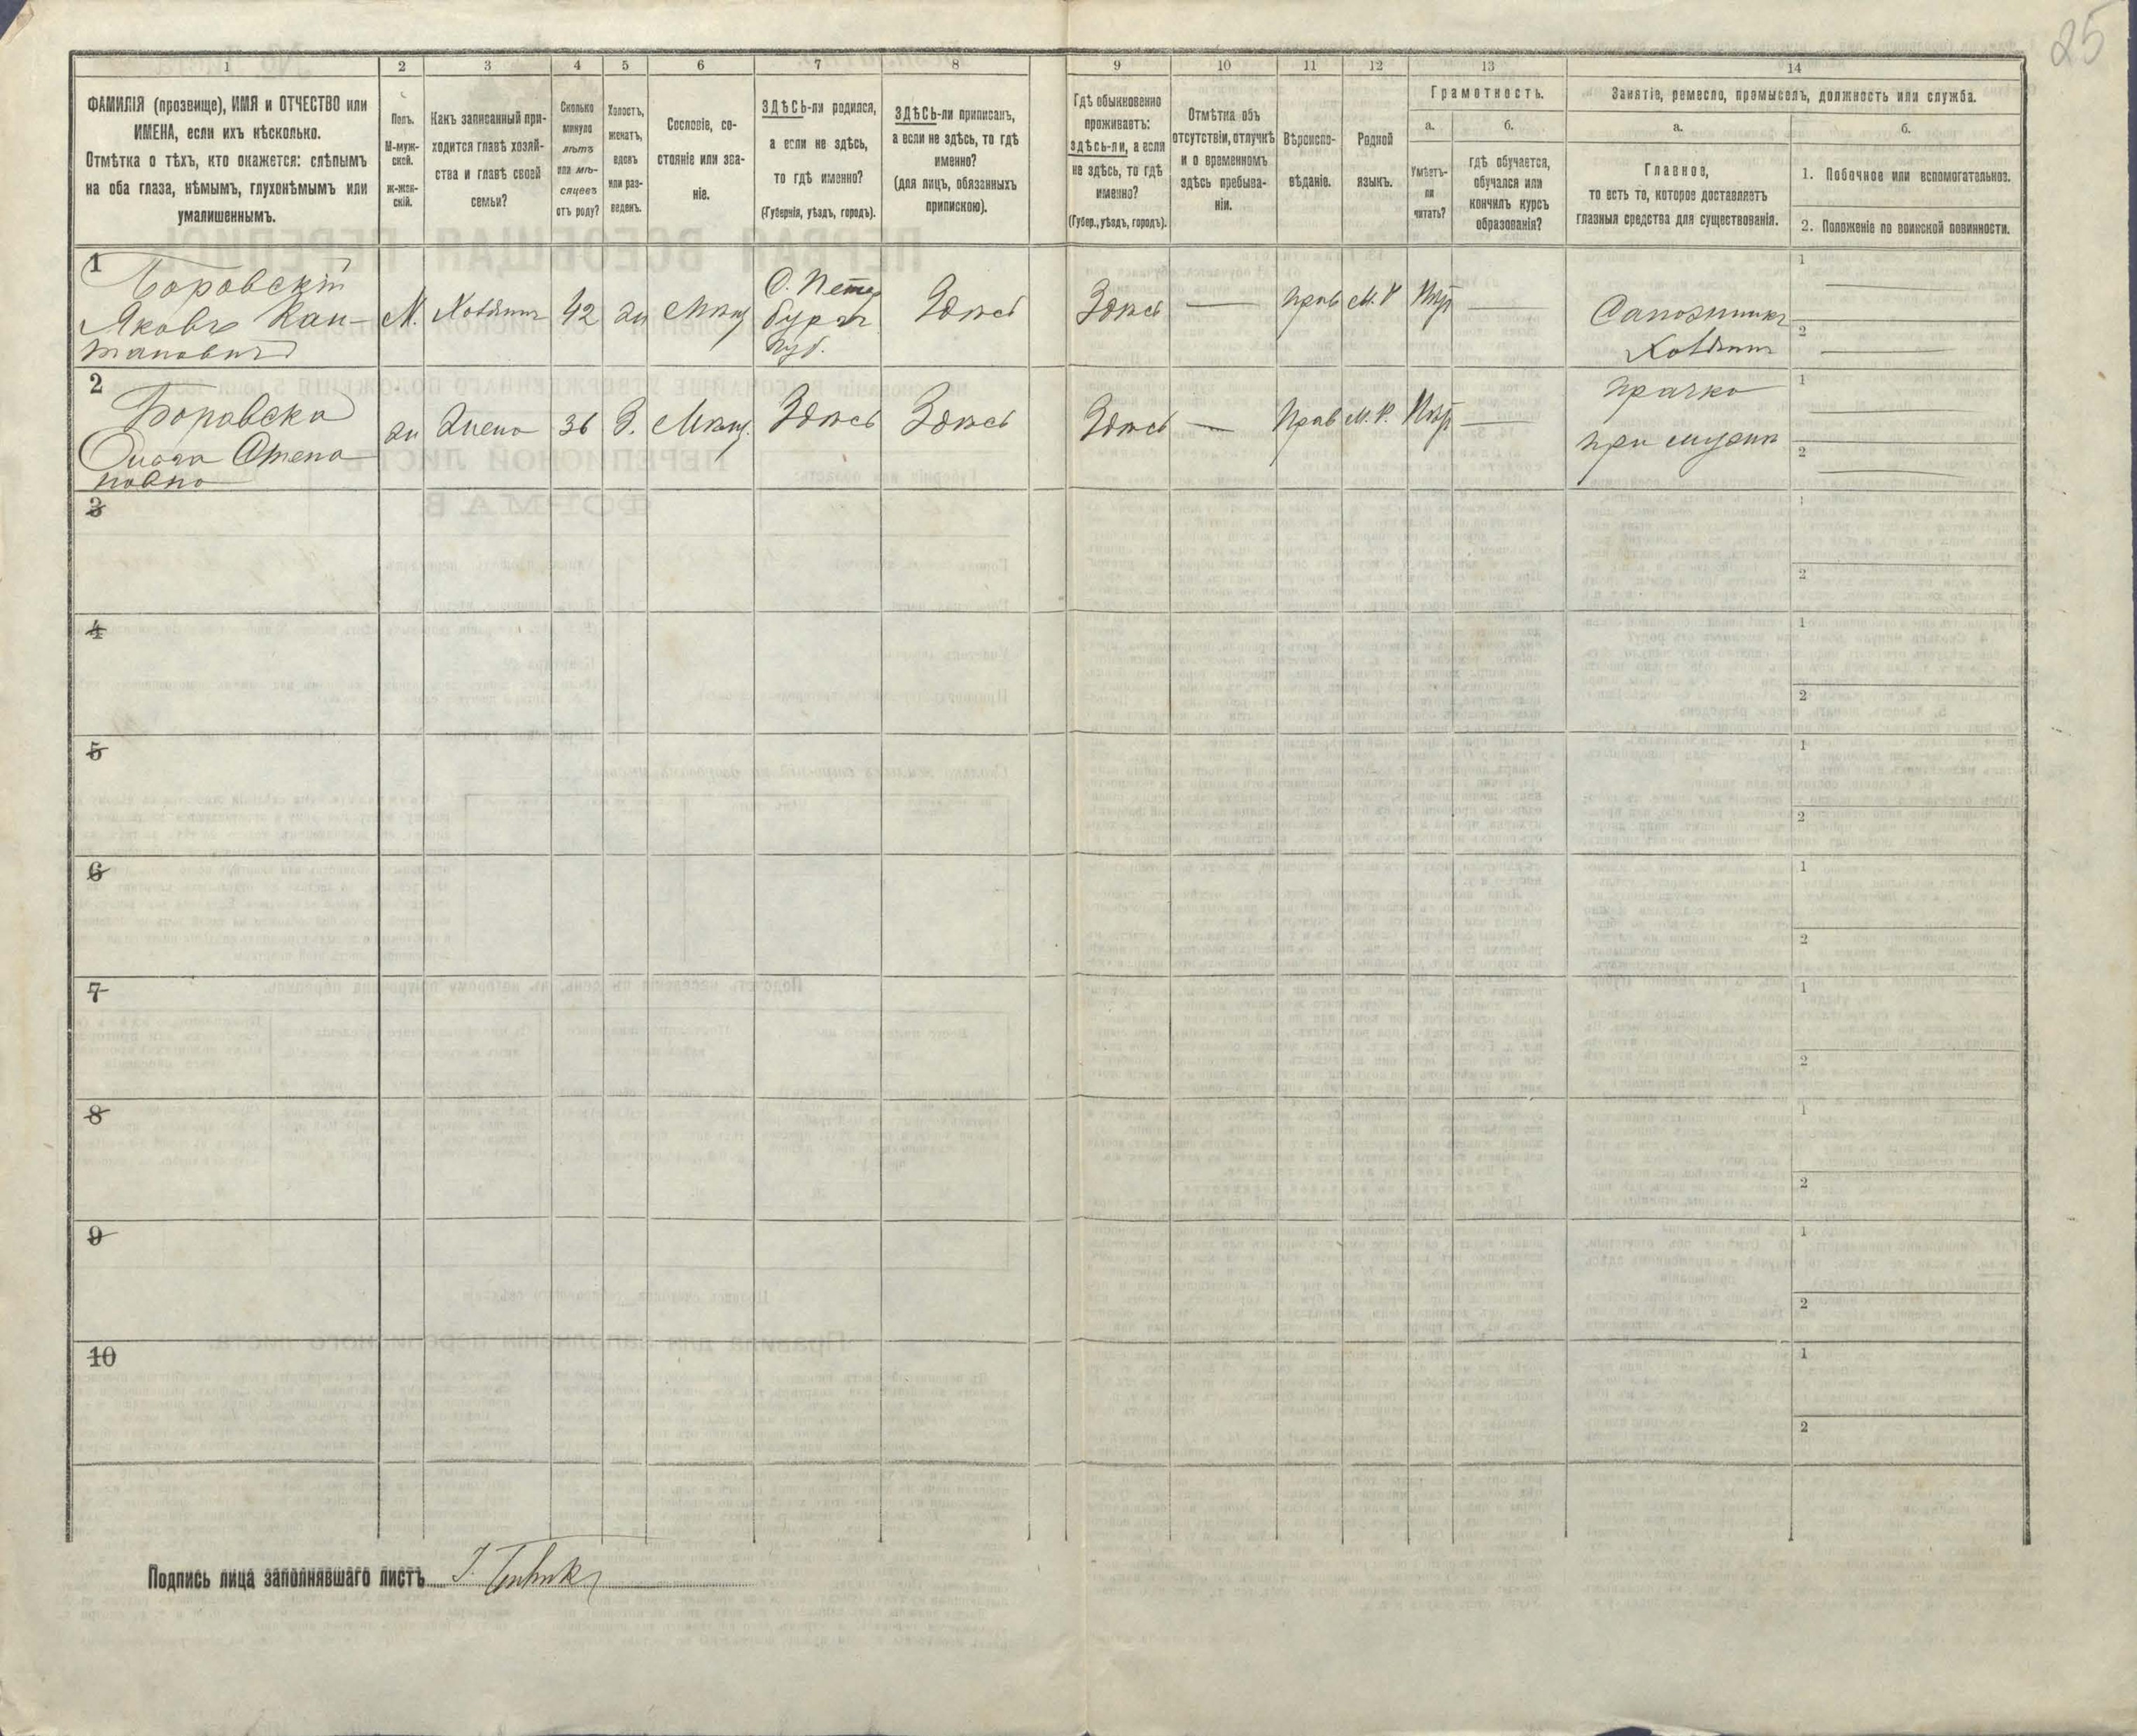 25
1 2 3 4 5 6 7 8 9 10 11 12 13 14
ФАМИЛІЯ (прозвище), ИМЯ и ОТЧЕСТВО или
ИМЕНА, если ихъ нѣсколько.
Отмѣтка о тѣхъ, кто окажется: слѣпымъ
на оба глаза, нѣмымъ, глухонѣмымъ или
умалишеннымъ.
Полъ.
М-муж-
ской.
ж-жен-
скій.
Какъ записанный при-
ходится главѣ хозяй-
ства и главѣ своей
семьи?
Сколько
минуло
лѣтъ
или мѣ-
сяцевъ
отъ роду?
Холостъ,
женатъ,
вдовъ
или раз-
веденъ.
Сословіе, со-
стояніе или зва-
ніе.
ЗДѢСЬ-ли родился,
а если не здѣсь,
то гдѣ именно?
(Губернія, уѣздъ, городъ).
ЗДѢСЬ-ли приписанъ,
а если не здѣсь, то гдѣ
именно?
(для лицъ, обязанныхъ
припискою).
Гдѣ обыкновенно
проживаетъ:
здѣсь-ли, а если
не здѣсь, то гдѣ
именно?
(Губер., уѣздъ, городъ).
Отмѣтка объ
отсутствіи, отлучкѣ
и о временномъ
здѣсь пребыва-
ніи.
Вѣроиспо-
вѣданіе.
Родной
языкъ.
Грамотность.
а.
Умѣетъ-
ли
читать?
б.
гдѣ обучается,
обучался или
кончилъ курсъ
образованія?
Занятіе, ремесло, промыселъ, должность или служба.
а.
Главное,
то есть то, которое доставляетъ
главныя средства для существованія.
б.
1. Побочное или вспомогательное.
2. Положеніе по воинской повинности.
1
Боровскій
Яковъ Капи-
тановичъ
М.
Хозяинъ
42
ж
Мѣщ
С. Петер
бургъ
Губ.
Здѣсь
Здѣсь
—
прав
М. Р
—
Сапожникъ
Хозяинъ
1
2
2
Боровска
Степа
новна
ж
Жена
36
З.
Мѣщ.
Здѣсь
Здѣсь
Здѣсь
—
Прав
М. Р.
—
прачка
при мужѣ
1
2
3
1
2
4
1
2
5
1
2
6
1
2
7
1
2
8
1
2
9
1
2
10
1
2
Подпись лица заполнявшаго листъ